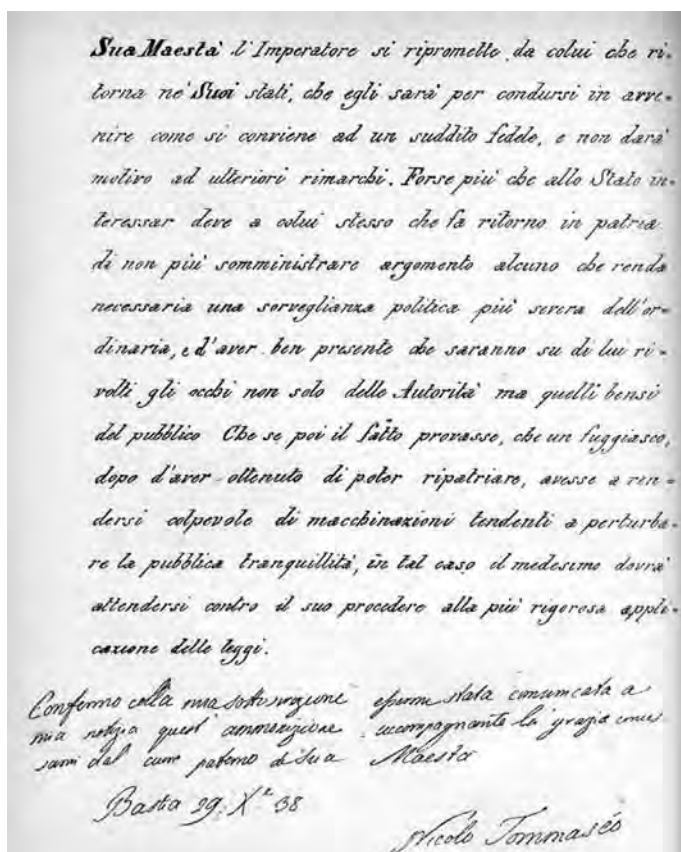 Sua Maestà l'Imperatore si ripromette da colui che ri-
torna ne' Suoi stati, che egli sarà per condursi in avve-
nire come si conviene ad un suddito fedele, e non darà
motivo ad ulteriori rimarchi. Forse più che allo Stato in-
teressar deve a colui stesso che fa ritorno in patria
di non più somministrare argomento alcuno che renda
necessaria una sorveglianza politica più severa dell'or-
dinaria, e d'aver ben presente che saranno su di lui ri-
volti gli occhi non solo delle Autorità ma quelli bensì
del pubblico Che se poi il fatto provasse, che un fuggiasco,
dopo d'aver ottenuto di poter ripatriare, avesse a ren-
dersi colpevole di macchinazioni tendenti a perturba-
re la pubblica tranquillità, in tal caso il medesimo dovrà
attendersi contro il suo procedere alla più rigorosa appli-
cazione delle leggi.
Confermo colla mia sottoscrizione essermi stata comunicata a
mia notizia quest' ammonizione accompagnante la grazia
dal cuor paterno di Sua Maestà
Bastia 29. Xbre 38
Nicolò Tommaséo